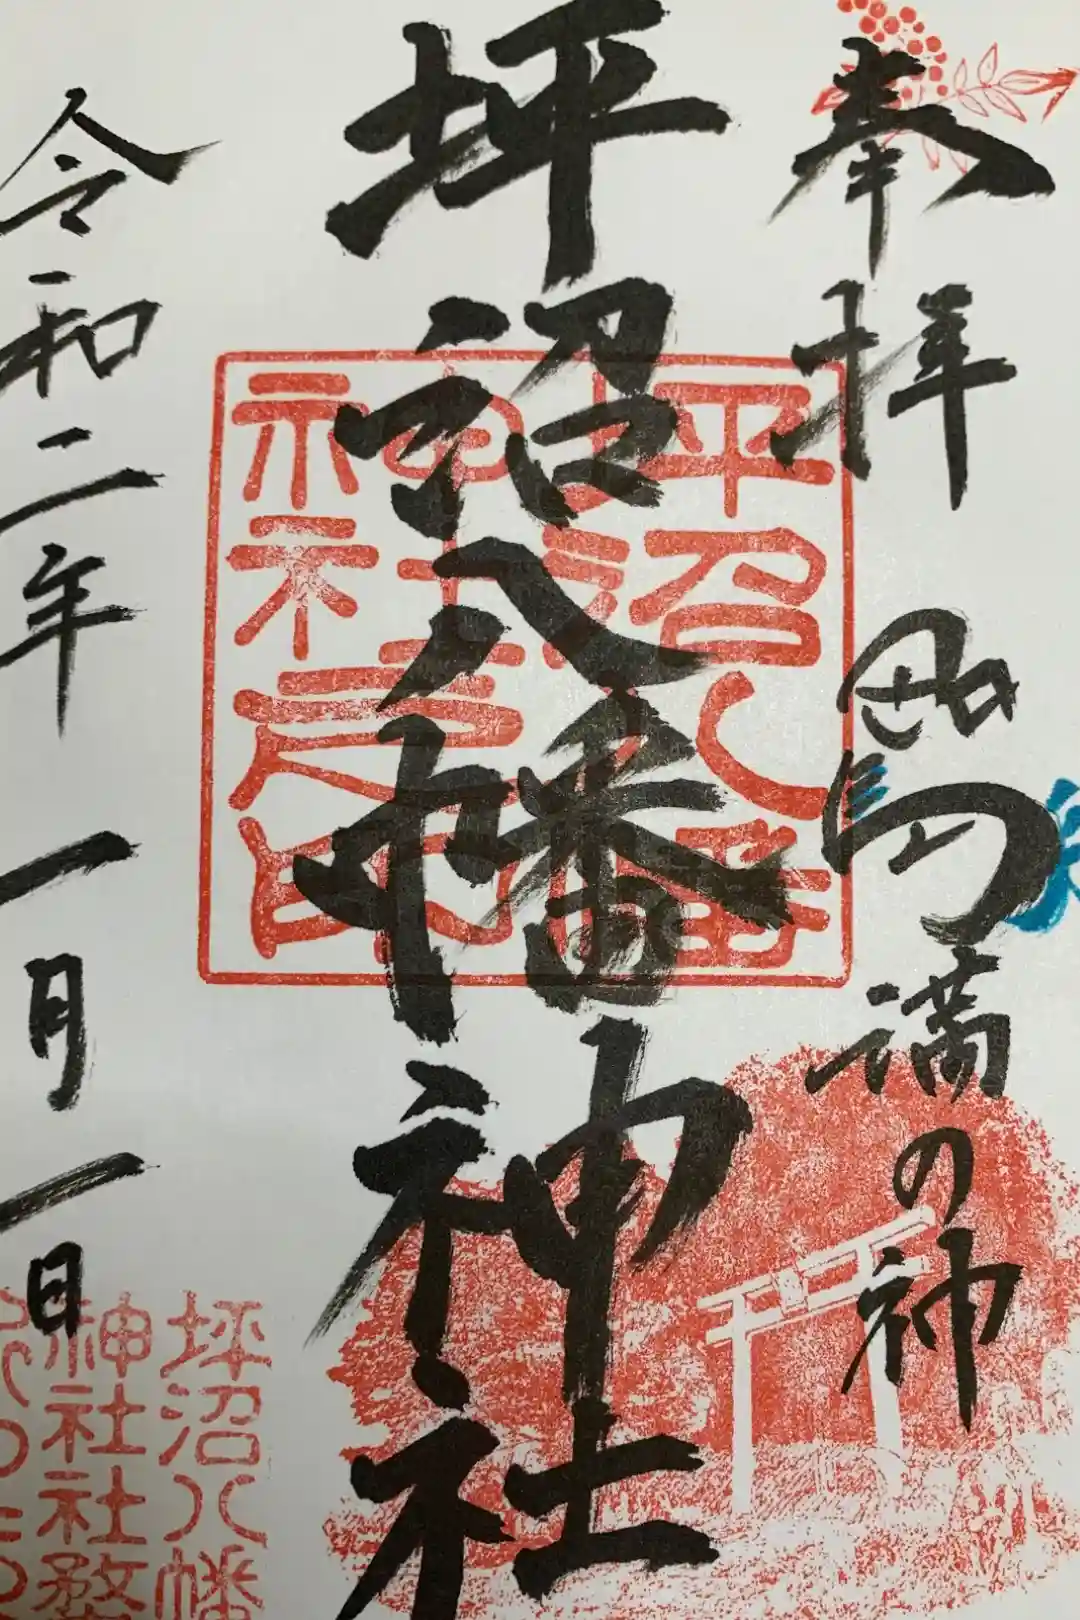 奉拝
満の神
坪沼八幡神社
令和二年一月一日
坪沼八幡
神社
坪沼八幡
神社社務